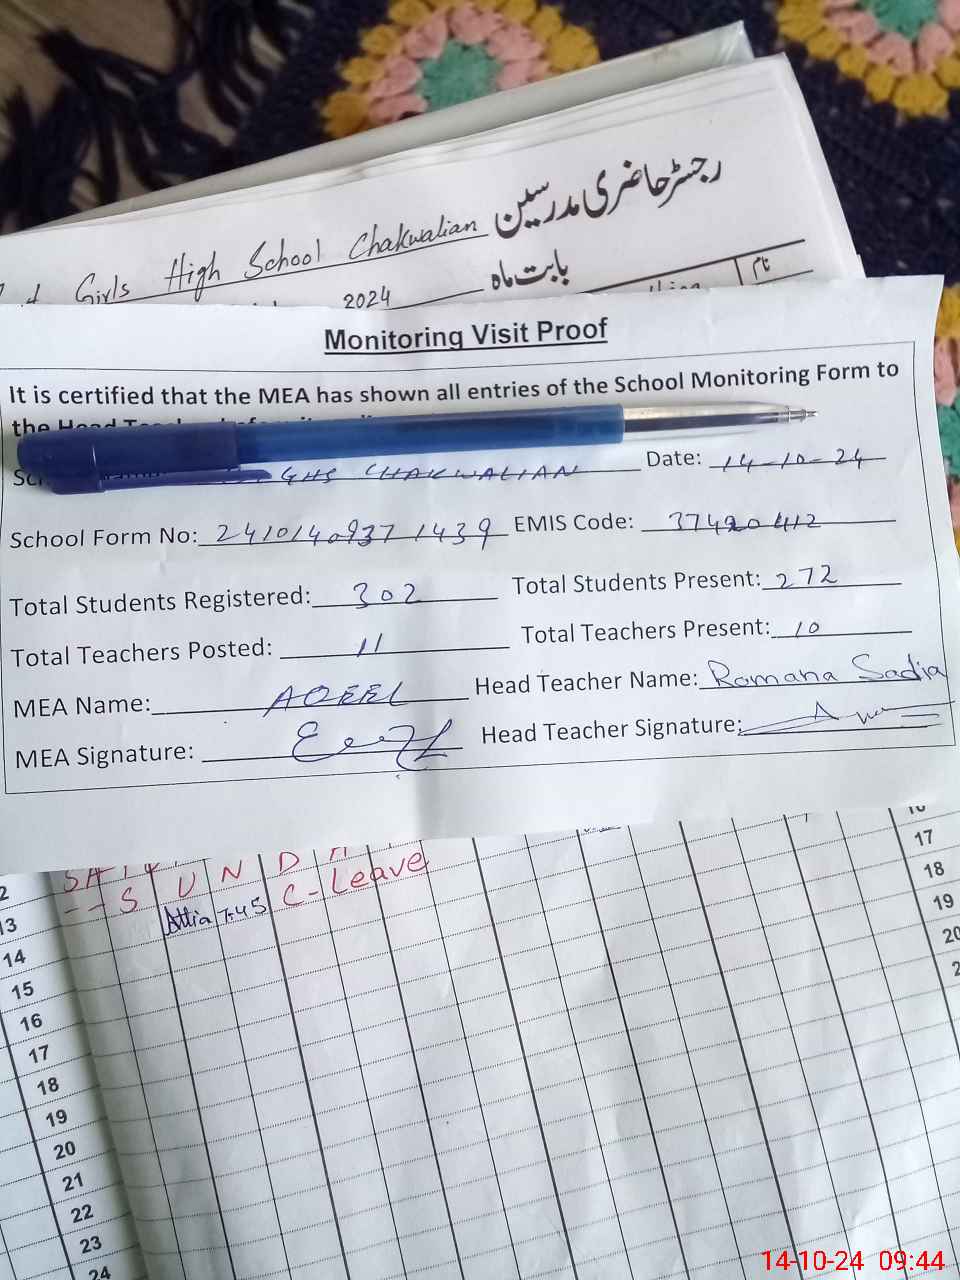 رجسٹر حاضری مدرسین
Girls High School Chakwalian
بابت ماہ
2024
نام
Monitoring Visit Proof
It is certified that the MEA has shown all entries of the School Monitoring Form to
the Head
GHS CHAKWALIAN Date: 14-10-24
School Form No: 2410140937 1439 EMIS Code: 37420412
Total Students Registered: 302 Total Students Present: 272
Total Teachers Posted: 11 Total Teachers Present: 10
MEA Name: AQEEL Head Teacher Name: Romana Sadia
MEA Signature: Head Teacher Signature:
S U N D
13 Attia 7:45 C-Leave
14
15
16
17
18
19
20
21
22
23
24
17
18
19
20
14-10-24 09:44